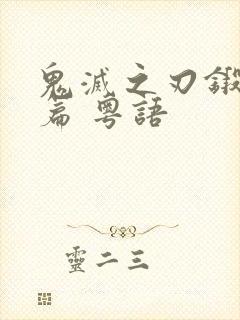 鬼滅之刃鍛
篇 粵語
靈二三